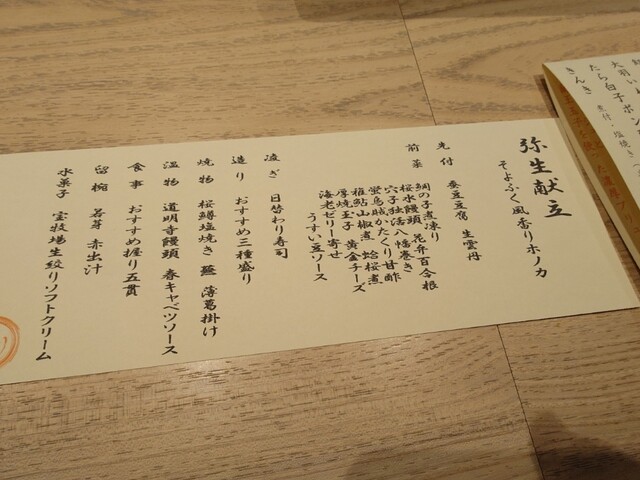 弥生献立
そよふく風香りホノカ
先付 蚕豆豆腐 生雲丹
前菜 鯛の子煮凍り 花弁百合根
桜水饅頭 穴子独活八幡巻き
蛍烏賊かたくり甘酢
稚鮎山椒煮 蛤桜煮
厚焼玉子 黄金チーズ
海老ゼリー寄せ
うすい豆ソース
凌ぎ 日替わり寿司
造り おすすめ三種盛り
焼物 桜鱒塩焼き 独活 薄葛掛け
温物 道明寺饅頭 春キャベツソース
食事 おすすめ握り五貫
留椀 若芽 赤出汁
水菓子 宝牧場生絞りソフトクリーム
たら白子ポン
煮付・塩焼き
きんき